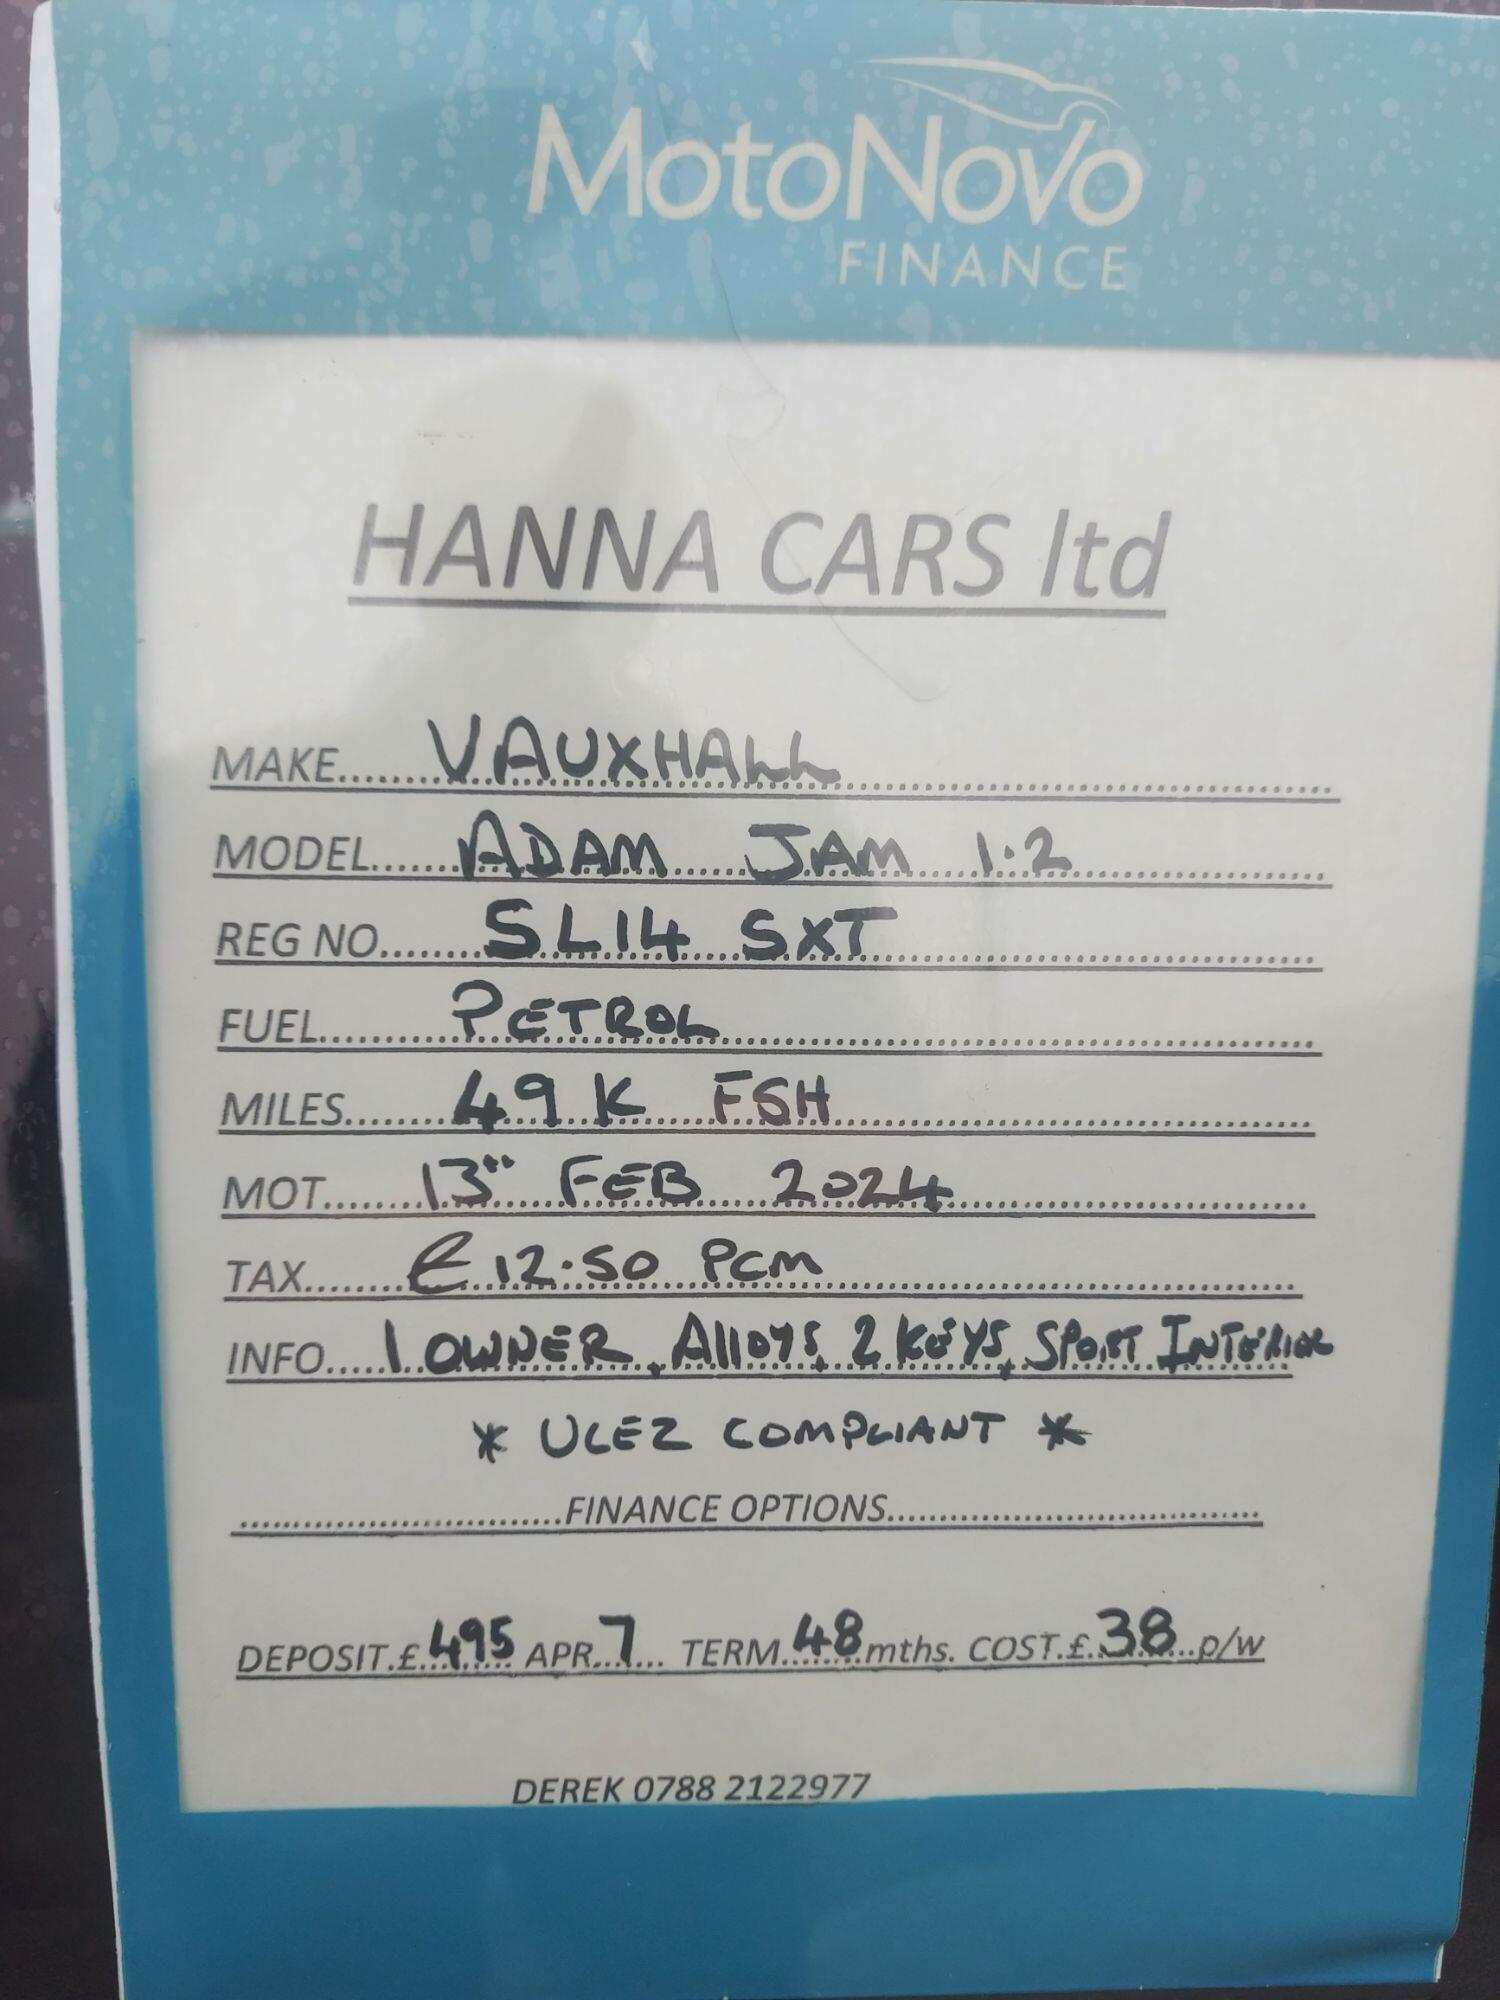 MOTONOVO
FINANCE
HANNA CARS ltd
MAKE.......VAUXHALL
MODEL.......ADAM JAM 1.2
REG NO.......SL14 SXT
FUEL.......PETROL
MILES.......49K FSH
MOT.......13" FEB 2024
TAX.......£12.50 PCM
INFO.....1 OWNER, Alloys, 2 KEYS, SPORT INTERIOR
* ULEZ COMPLIANT *
.......FINANCE OPTIONS.......
DEPOSIT.£.495 APR..7... TERM..48mths. COST.£.38..p/w
DEREK 0788 2122977